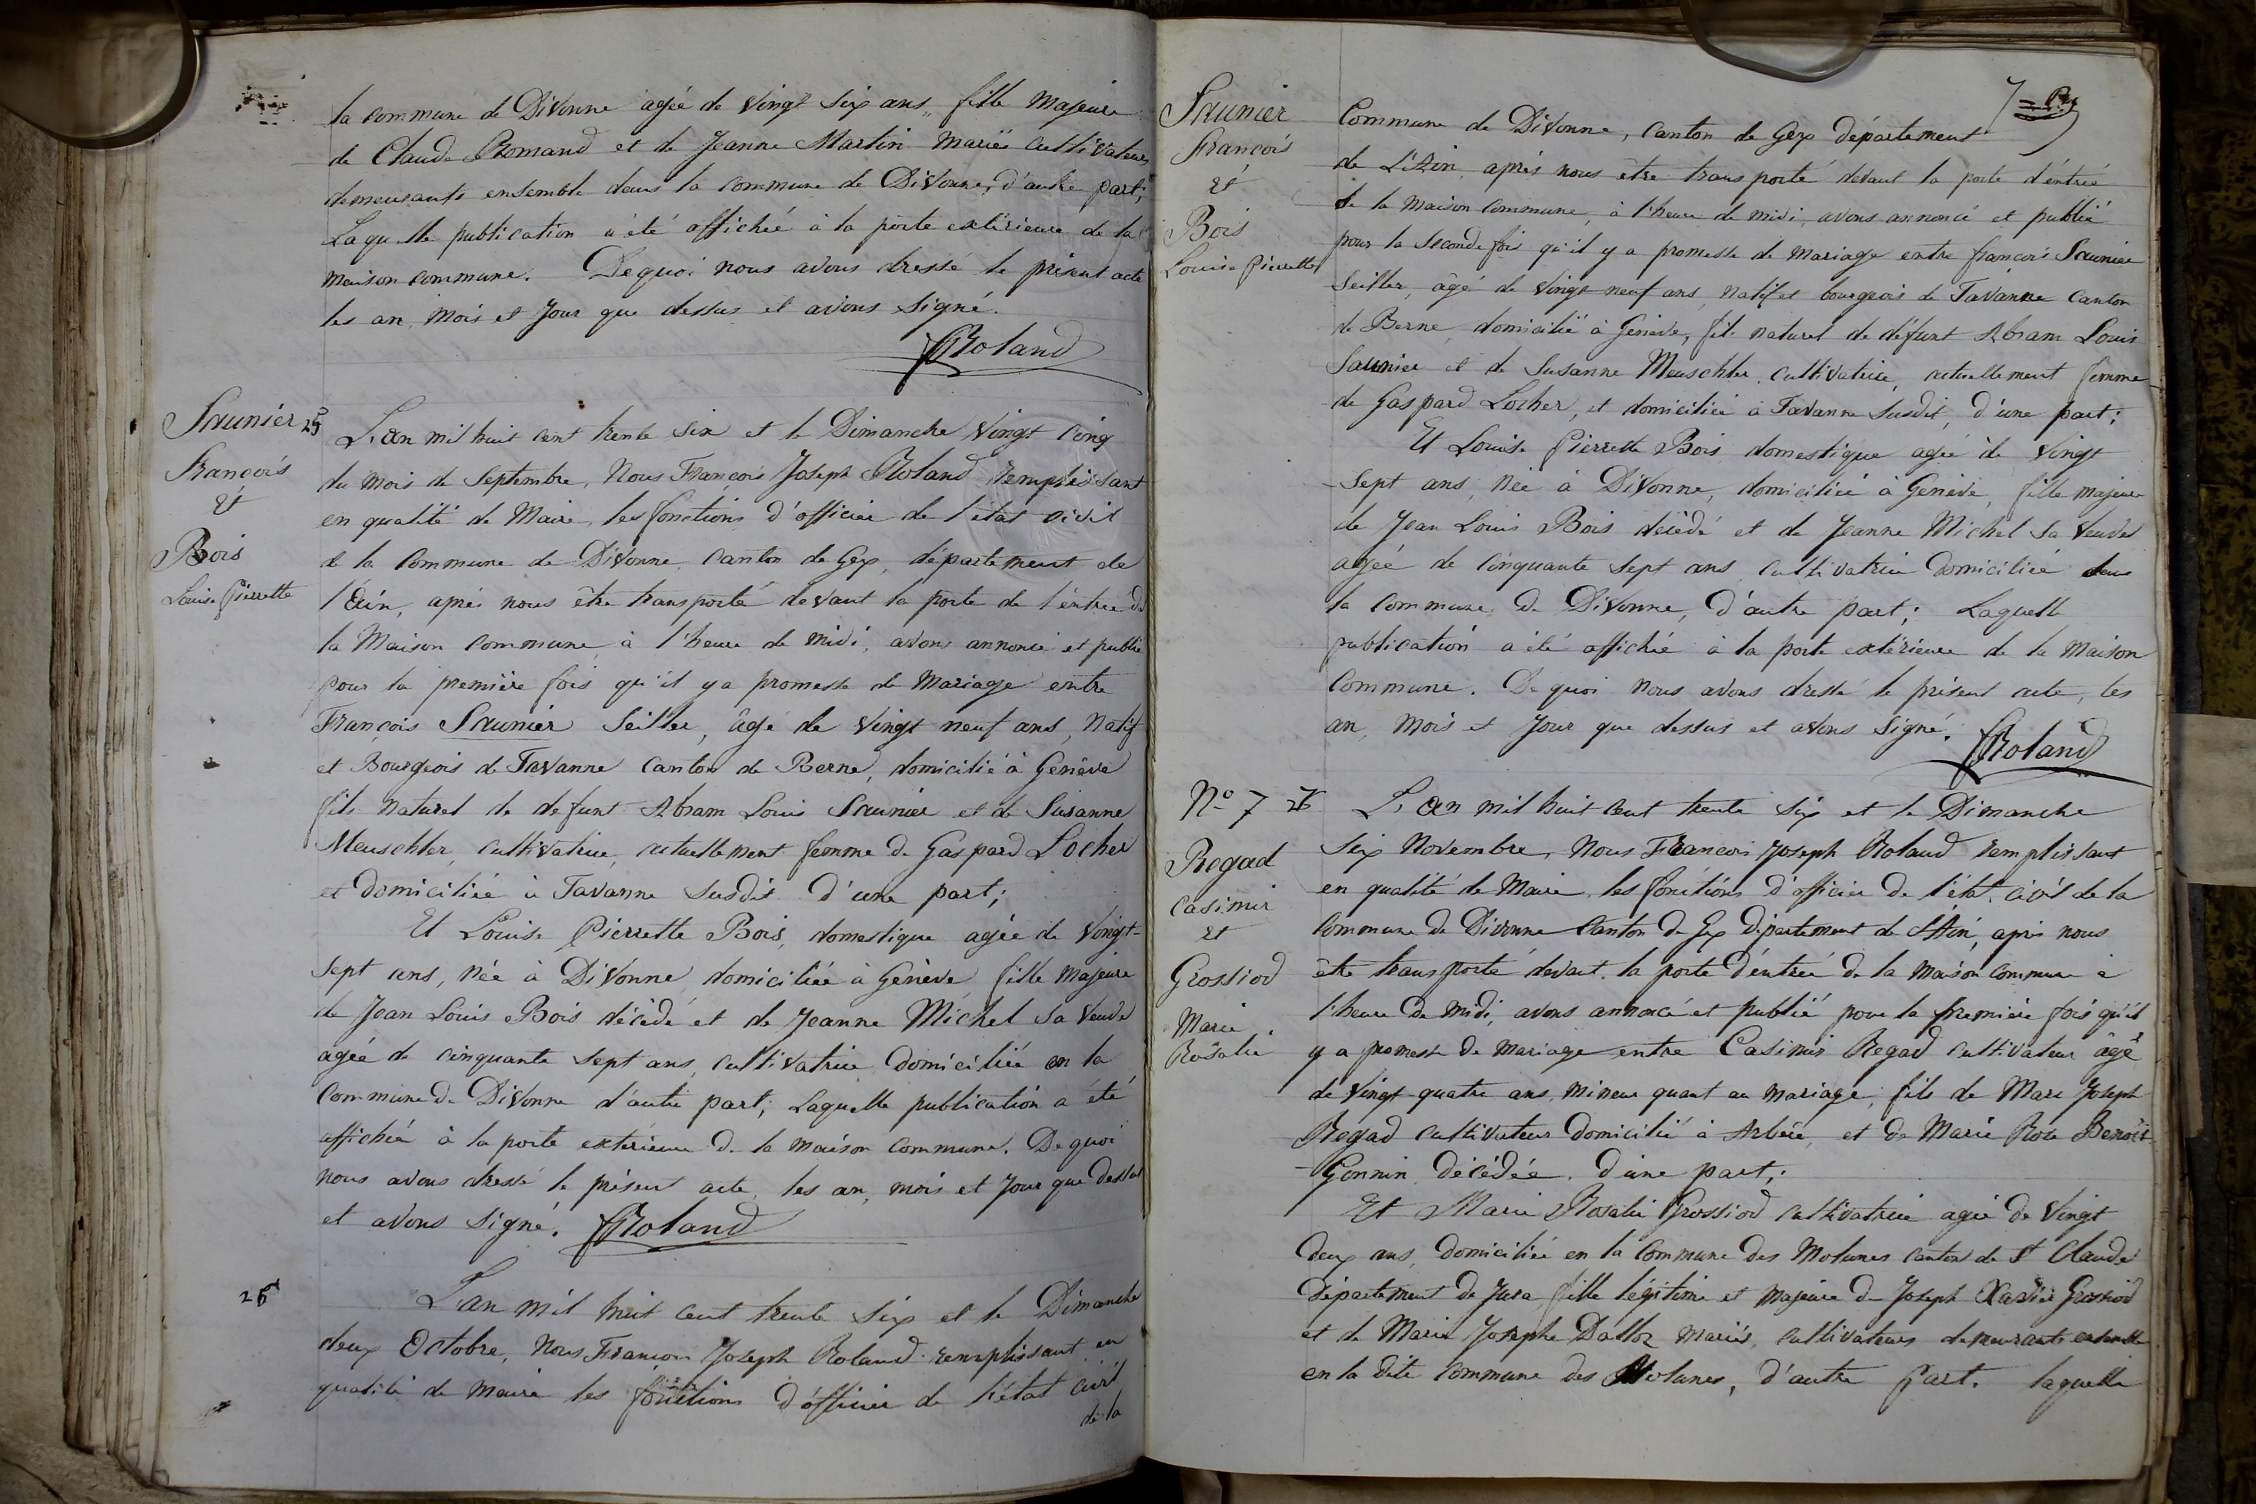 la commune de Divonne agée de vingt six ans, fille majeure
de Claude Romand et de Jeanne Martin mariés cultivateurs
demeurants ensemble dans la commune de Divonne, d'autre part;
Laquelle publication a été affichée à la porte extérieure de la
maison commune. De quoi nous avons dressé le présent acte
les an, mois et jour que dessus et avons signé.
Roland
Saunier
François
et
Bois
Louise Pierrette
25
L'an mil huit cent trente six et le Dimanche vingt cinq
du mois de Septembre, Nous François Joseph Roland remplissant
en qualité de Maire, les fonctions d'officier de l'état civil
de la commune de Divonne, canton de Gex, département de
l'Ain, après nous être transporté devant la porte de l'éntrée de
la Maison commune à l'heure de midi, avons annoncé et publié
pour la première fois qu'il y a promesse de Mariage entre
François Saunier Seiller, âgé de vingt neuf ans, Natif
et Bourgeois de Tavanne Canton de Berne, domicilié à Genève
fils naturel de defunt Abram Louis Saunier et de Susanne
Meuschler, cultivatrice, actuellement femme de Gaspard Locher
et domiciliée à Tavanne susdit d'une part;
Et Louise Pierrette Bois, domestique agée de vingt-
sept ans, née à Divonne, domiciliée à Genève, fille majeure
de Jean Louis Bois décédé et de Jeanne Michel sa veuve
agée de cinquante sept ans, cultivatrice domiciliée en la
commune de Divonne d'autre part; Laquelle publication a été
affichée à la porte extérieure de la maison commune. De quoi
nous avons dressé le présent acte, les an, mois et jour que dessus
et avons signé. Roland
26
L'an mil huit cent trente six et le Dimanche
deux Octobre, Nous François Joseph Roland remplissant en
qualité de maire les fonctions d'officier de l'état civil
de la
Saunier
François
et
Bois
Louise Pierrette
Commune de Divonne, canton de Gex département
de L'Ain, après nous être transporté devant la porte d'éntrée
de la maison commune, à l'heure de midi, avons annoncé et publié
pour la seconde fois qu'il y a promesse de mariage entre françois Saunier
Seiller, âgé de vingt neuf ans, natif et bourgeois de Tavanne Canton
de Berne, domicilié à Genève, fils naturel de défunt Abram Louis
Saunier et de Susanne Meuschler, cultivatrice, actuellement femme
de Gaspard Locher, et domiciliée à Tavanne susdit, d'une part;
Et Louise Pierrette Bois domestique agée de vingt
sept ans, née à Divonne, domiciliée à Genève, fille majeure
de Jean Louis Bois décédé et de Jeanne Michel sa veuve
agée de cinquante sept ans, cultivatrice domiciliée dans
la commune de Divonne, d'autre part; Laquelle
publication a été affichée à la porte extérieure de la maison
commune. De quoi nous avons dressé le présent acte, les
an, mois et jour que dessus et avons signé.
Roland
No 7
Regad
Casimir
et
Grossiod
Marie
Rosalie
L'an mil huit cent trente six et le Dimanche
six Novembre, Nous François Joseph Roland remplissant
en qualité de Maire, les fonctions d'officier de l'état civil de la
commune de Divonne Canton de Gex département de l'Ain, après nous
être transporté devant la porte d'éntrée de la maison commune à
l'heure de midi, avons annoncé et publié pour la première fois qu'il
y a promesse de mariage entre Casimir Regad cultivateur âgé
de vingt quatre ans, mineur quant au mariage, fils de Marc Joseph
Regad cultivateur domicilié à Arbère, et de Marie Rose Benoit
Gonnin décédée, d'une part;
Et Marie Rosalie Grossiod cultivatrice agée de vingt
deux ans, domiciliée en la commune des Molunes canton de St Claude
département du Jura, fille légitime et majeure de Joseph Xavier Grossiod
et de Marie Josephe Dalloz mariés, cultivateurs demeurants ensemble
en la dite commune des Molunes, d'autre part. laquelle